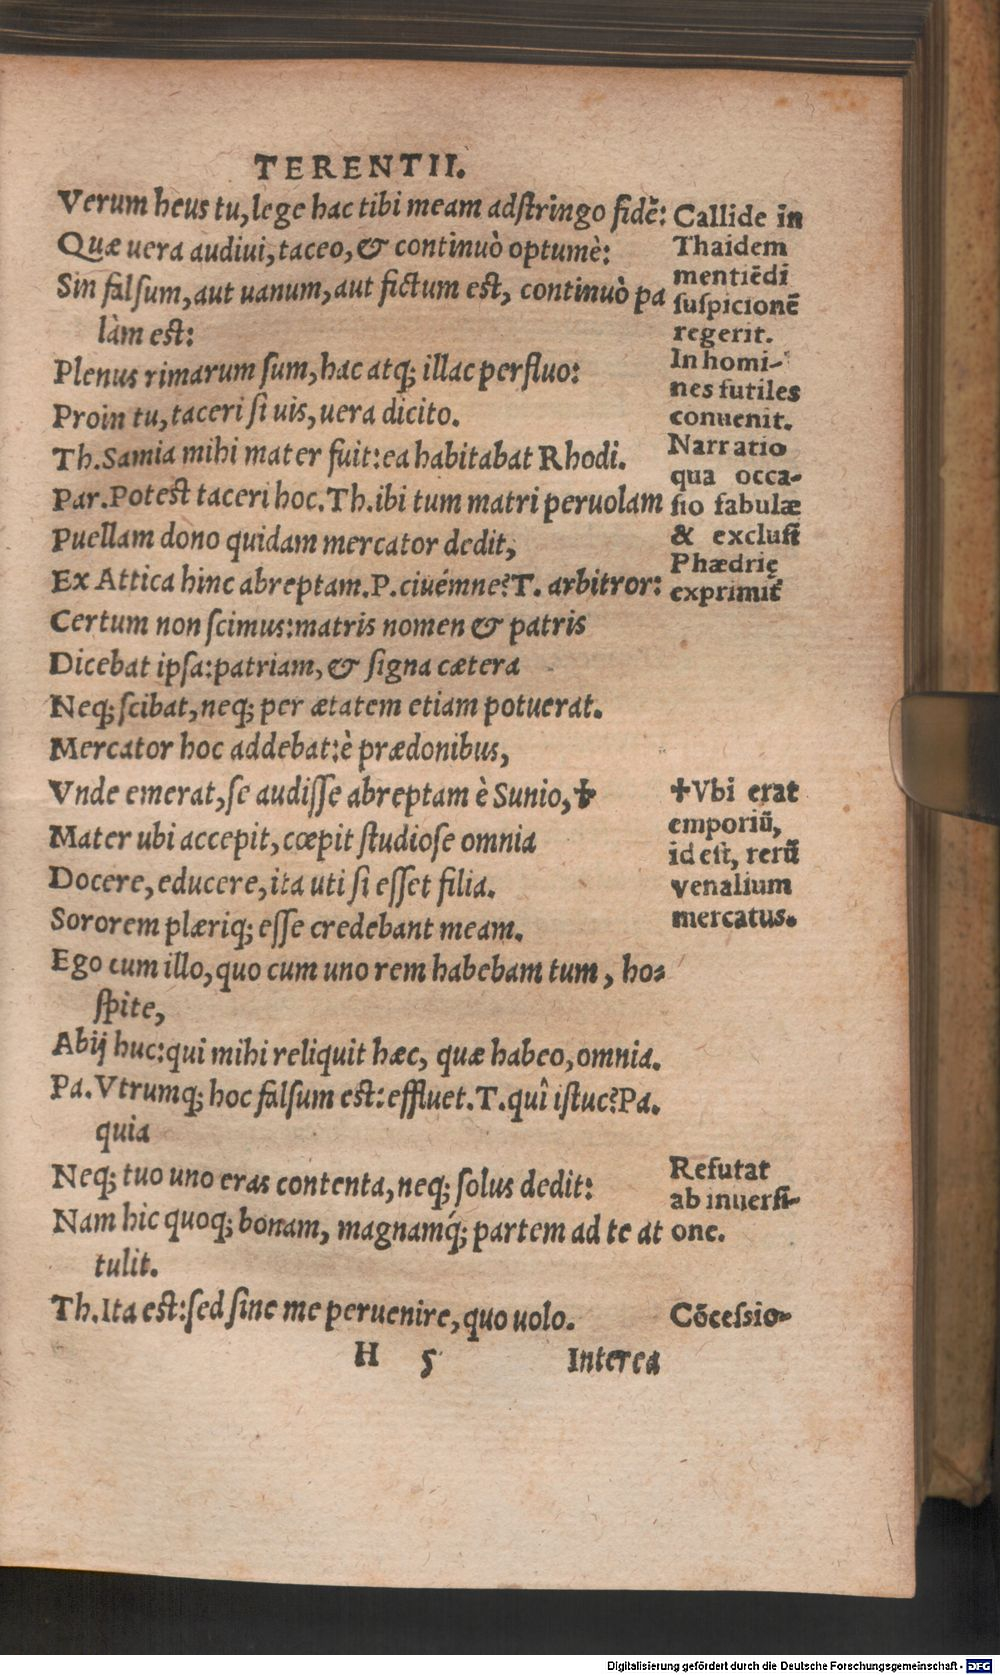 TERENTII.
Verum heus tu, lege hac tibi meam adstringo fidē:
Quæ uera audiui, taceo, & continuò optumè:
Sin falsum, aut uanum, aut fictum est, continuò pa
làm est:
Plenus rimarum sum, hac atq; illac perfluo:
Proin tu, taceri si uis, uera dicito.
Th. Samia mihi mater fuit: ea habitabat Rhodi.
Par. Potest taceri hoc. Th. ibi tum matri peruolam
Puellam dono quidam mercator dedit,
Ex Attica hinc abreptam. P. ciuémne? T. arbitror:
Certum non scimus: matris nomen & patris
Dicebat ipsa: patriam, & signa cætera
Neq; scibat, neq; per ætatem etiam potuerat.
Mercator hoc addebat: è prædonibus,
Vnde emerat, se audisse abreptam è Sunio, ✝
Mater ubi accepit, cœpit studiose omnia
Docere, educere, ita uti si esset filia.
Sororem plæriq; esse credebant meam.
Ego cum illo, quo cum uno rem habebam tum, ho-
spite,
Abij huc: qui mihi reliquit hæc, quæ habeo, omnia.
Pa. Vtrumq; hoc falsum est: effluet. T. quî istuc? Pa.
quia
Neq; tuo uno eras contenta, neq; solus dedit:
Nam hic quoq; bonam, magnamq́; partem ad te at
tulit.
Th. Ita est: sed sine me peruenire, quo uolo.
H 5 Interea
Callide in
Thaidem
mentiēdi
suspicionē
regerit.
In homi-
nes futiles
conuenit.
Narratio
qua occa-
sio fabulæ
& exclusi
Phædrię
exprimit
✝Vbi erat
emporiū,
id est, rerū
venalium
mercatus.
Refutat
ab inuersi-
one.
Cōcessio-
Digitalisierung gefördert durch die Deutsche Forschungsgemeinschaft - DFG